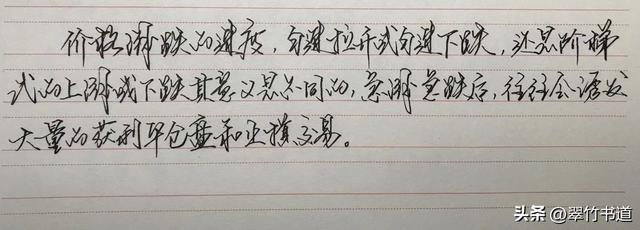 价格涨跌的速度，匀速拉升或匀速下跌，还是阶梯
式的上涨或下跌其意义是不同的，急涨急跌后，往往会诱发
大量的获利平仓盘和止损交易。
头条 @翠竹书道